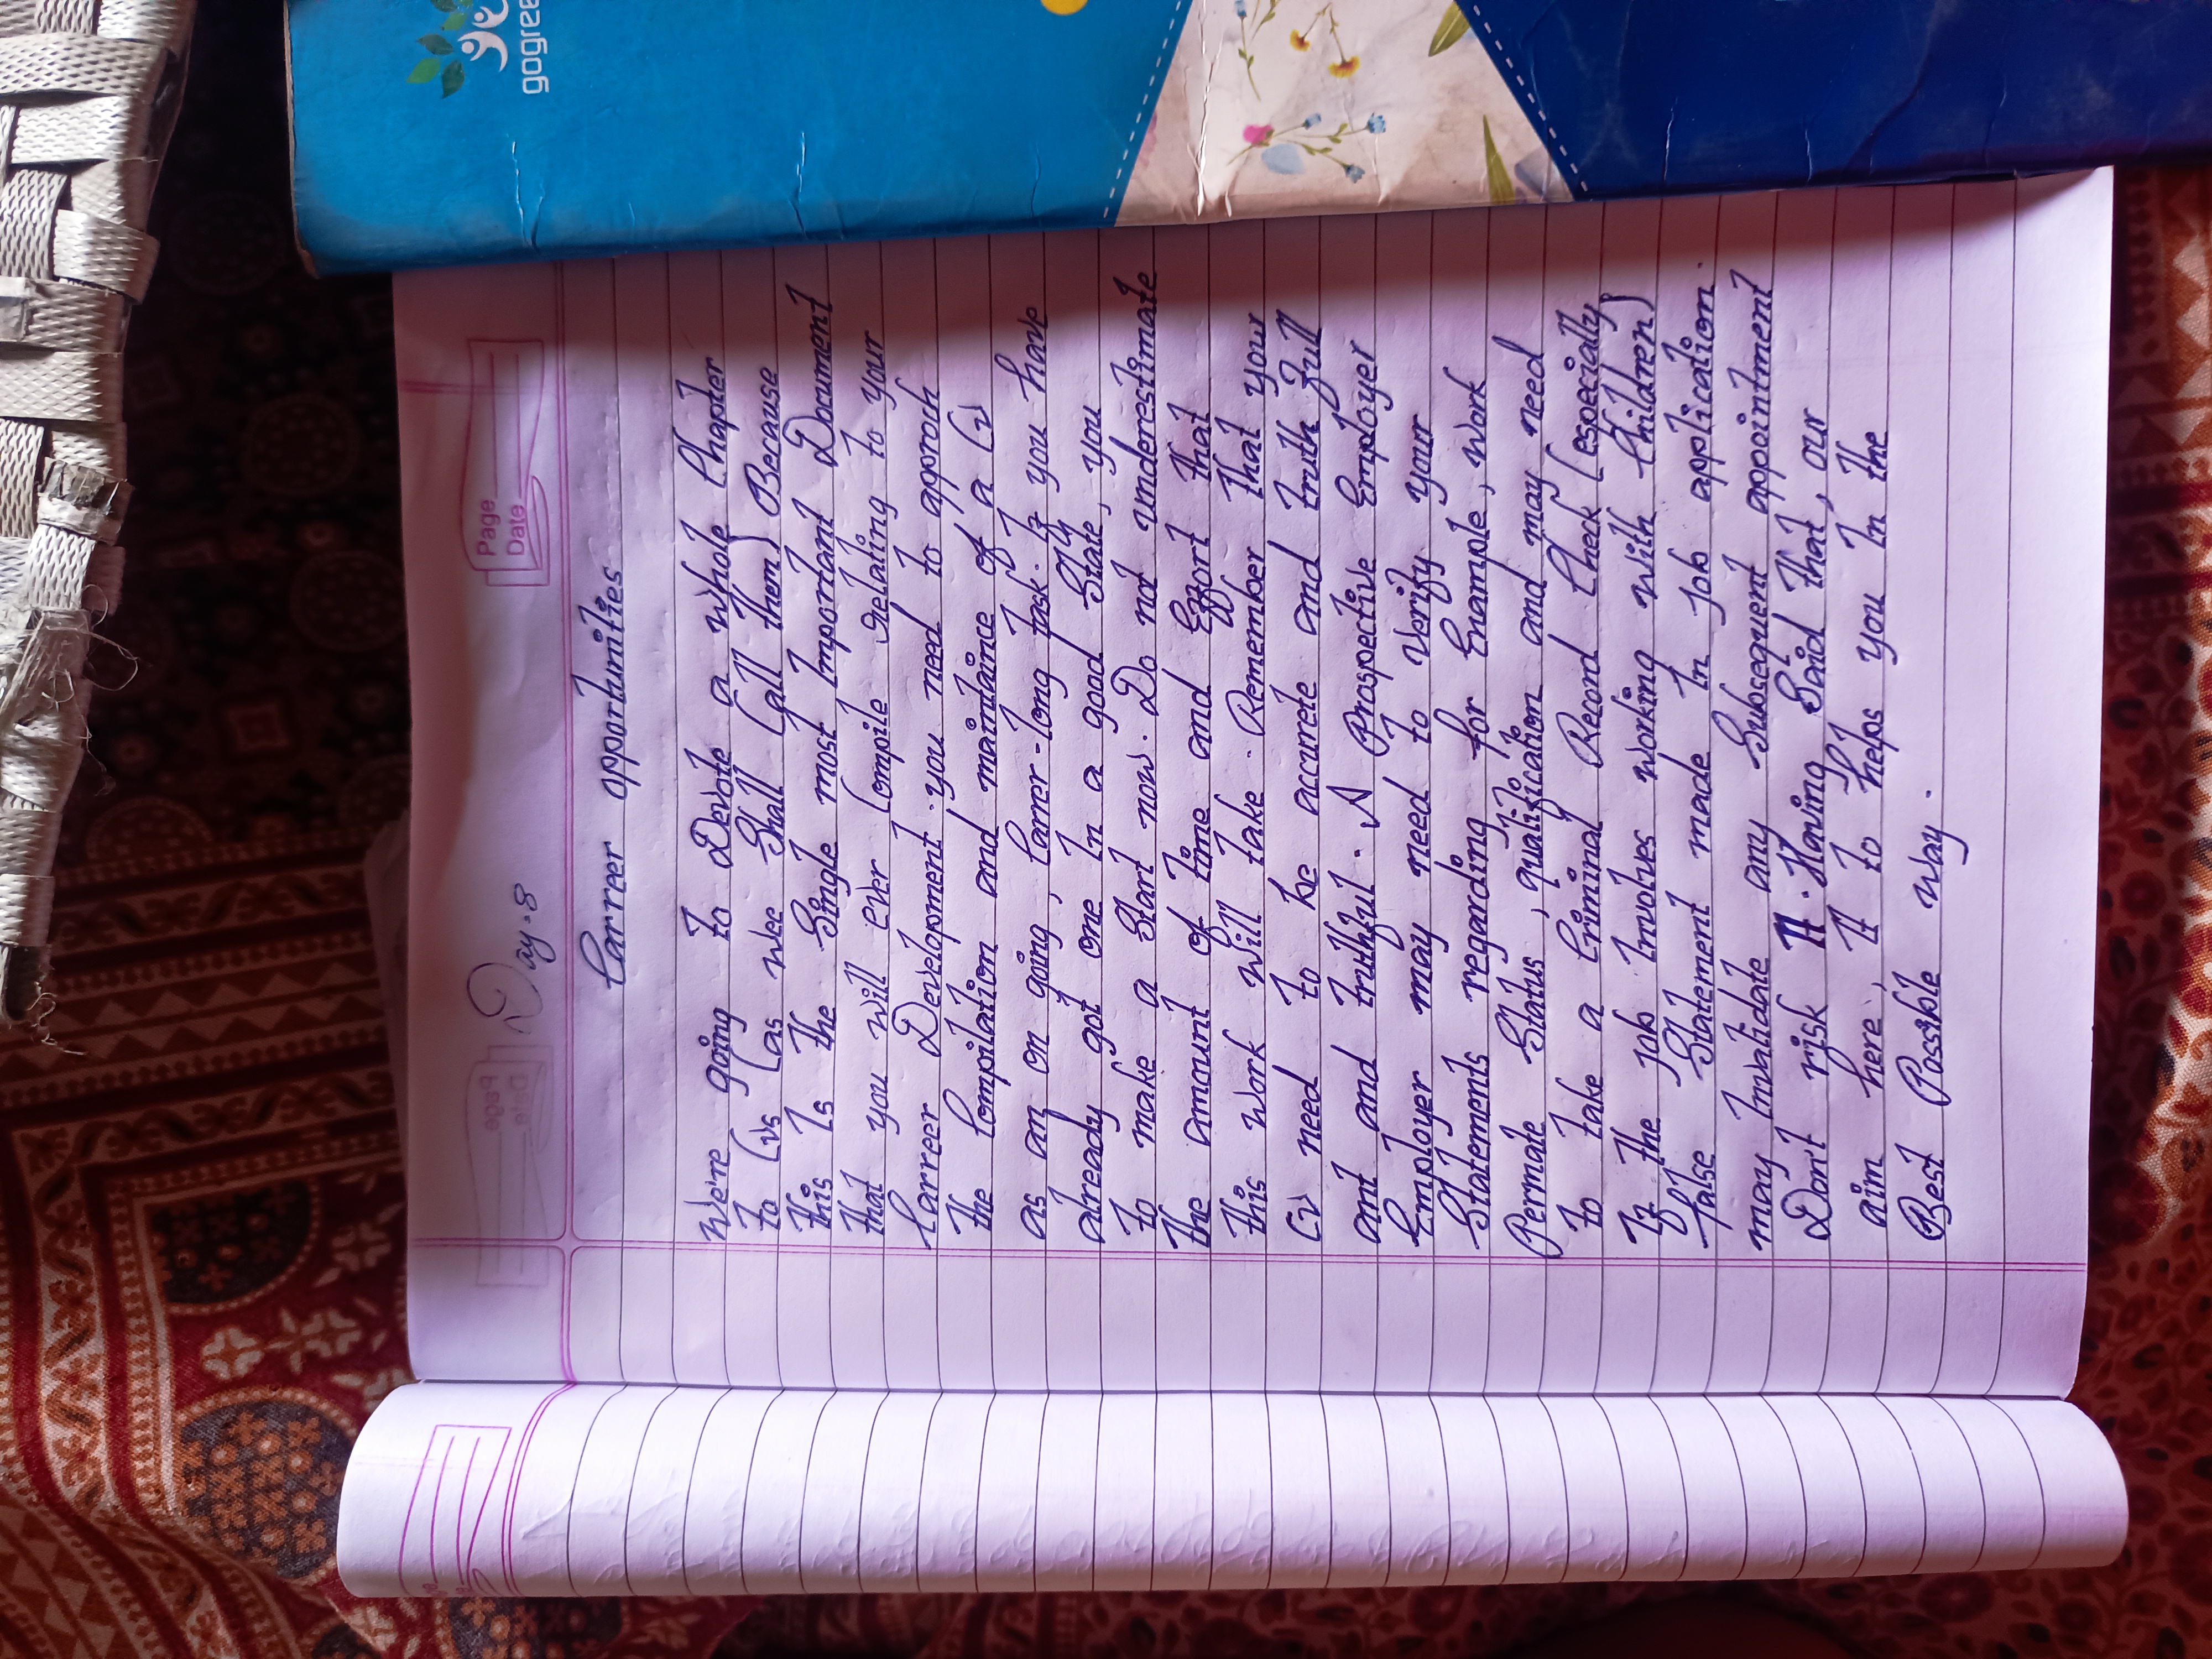 gogree
Page
Date
Day-8
Carreer opportunities
We're going to Devote a whole Chapter
to Cvs (as wee Shall Call them) Because
this Is the Single most Important Document
that you will ever Compile relating to your
Carreer Development. you need to approch
the Compilation and maintaince of a Cv
as an on going, Carrer-long task. If you have
already got one In a good State, you
to make a Start now. Do not underestimate
the amount of time and Effort that
this work will take. Remember that your
Cv need to be accurete and truth full
ant and truthful. A Prospective Employer
Employer may need to Verify your
Statements regarding for Enample, work
Permate Status, qualification and may need
to take a Criminal Record Check (especially
If the job Involves working with Children)
false Statement made In job application.
may Invalidate any Subsequent appointment
Don't risk It. Having Said that, our
aim here, It to helps you In the
Best Possible way.